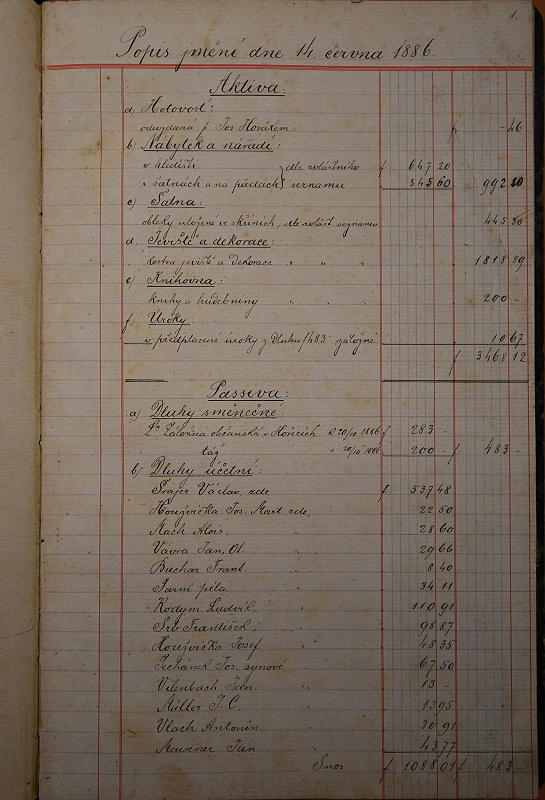 1.
Popis jmění dne 14. června 1886.
Aktiva:
a) Hotovost:
odevzdaná p. Jos. Horákem f - 46
b) Nábytek a nářadí:
v hledišti } dle zvláštního f 647 20
" šatnách a na půdách } seznamu 345 60 992 80
c) Šatna:
obleky uložené ve skříních, dle zvlášt. seznamu 445 30
d) Jeviště a dekorace:
kostra jeviště a Dekorace " " " 1818 89
e) Knihovna:
knihy a hudebniny " " " 200 -
f) Úroky:
předplacené úroky z Dluhu f 483 - záložně 10 67
f 3468 12
Passiva:
a) Dluhy směnečné:
Sl. Záložna občanská v Hořicích 20/10 1886 f 283 -
táž " 20/10 1886 " 200 - f 483 -
b) Dluhy účetní:
Šrajer Václav, zde f 537 48
Houžvička Jos. Mart. zde, 22 50
Mach Alois, " 28 60
Vávra Jan, " 29 66
Buchar Frant. " 8 40
Parní pila " 34 11
Kodym Ludvík, " 110 91
Srb František, " 98 87
Houžvička Josef " 48 35
Jos. synové " 67 50
Vilenbach Jan " 13 -
Müller J. C. " 13 95
Vlach Antonín " 30 91
Jan " 43 77
Snos f 1088 01 f 483 -